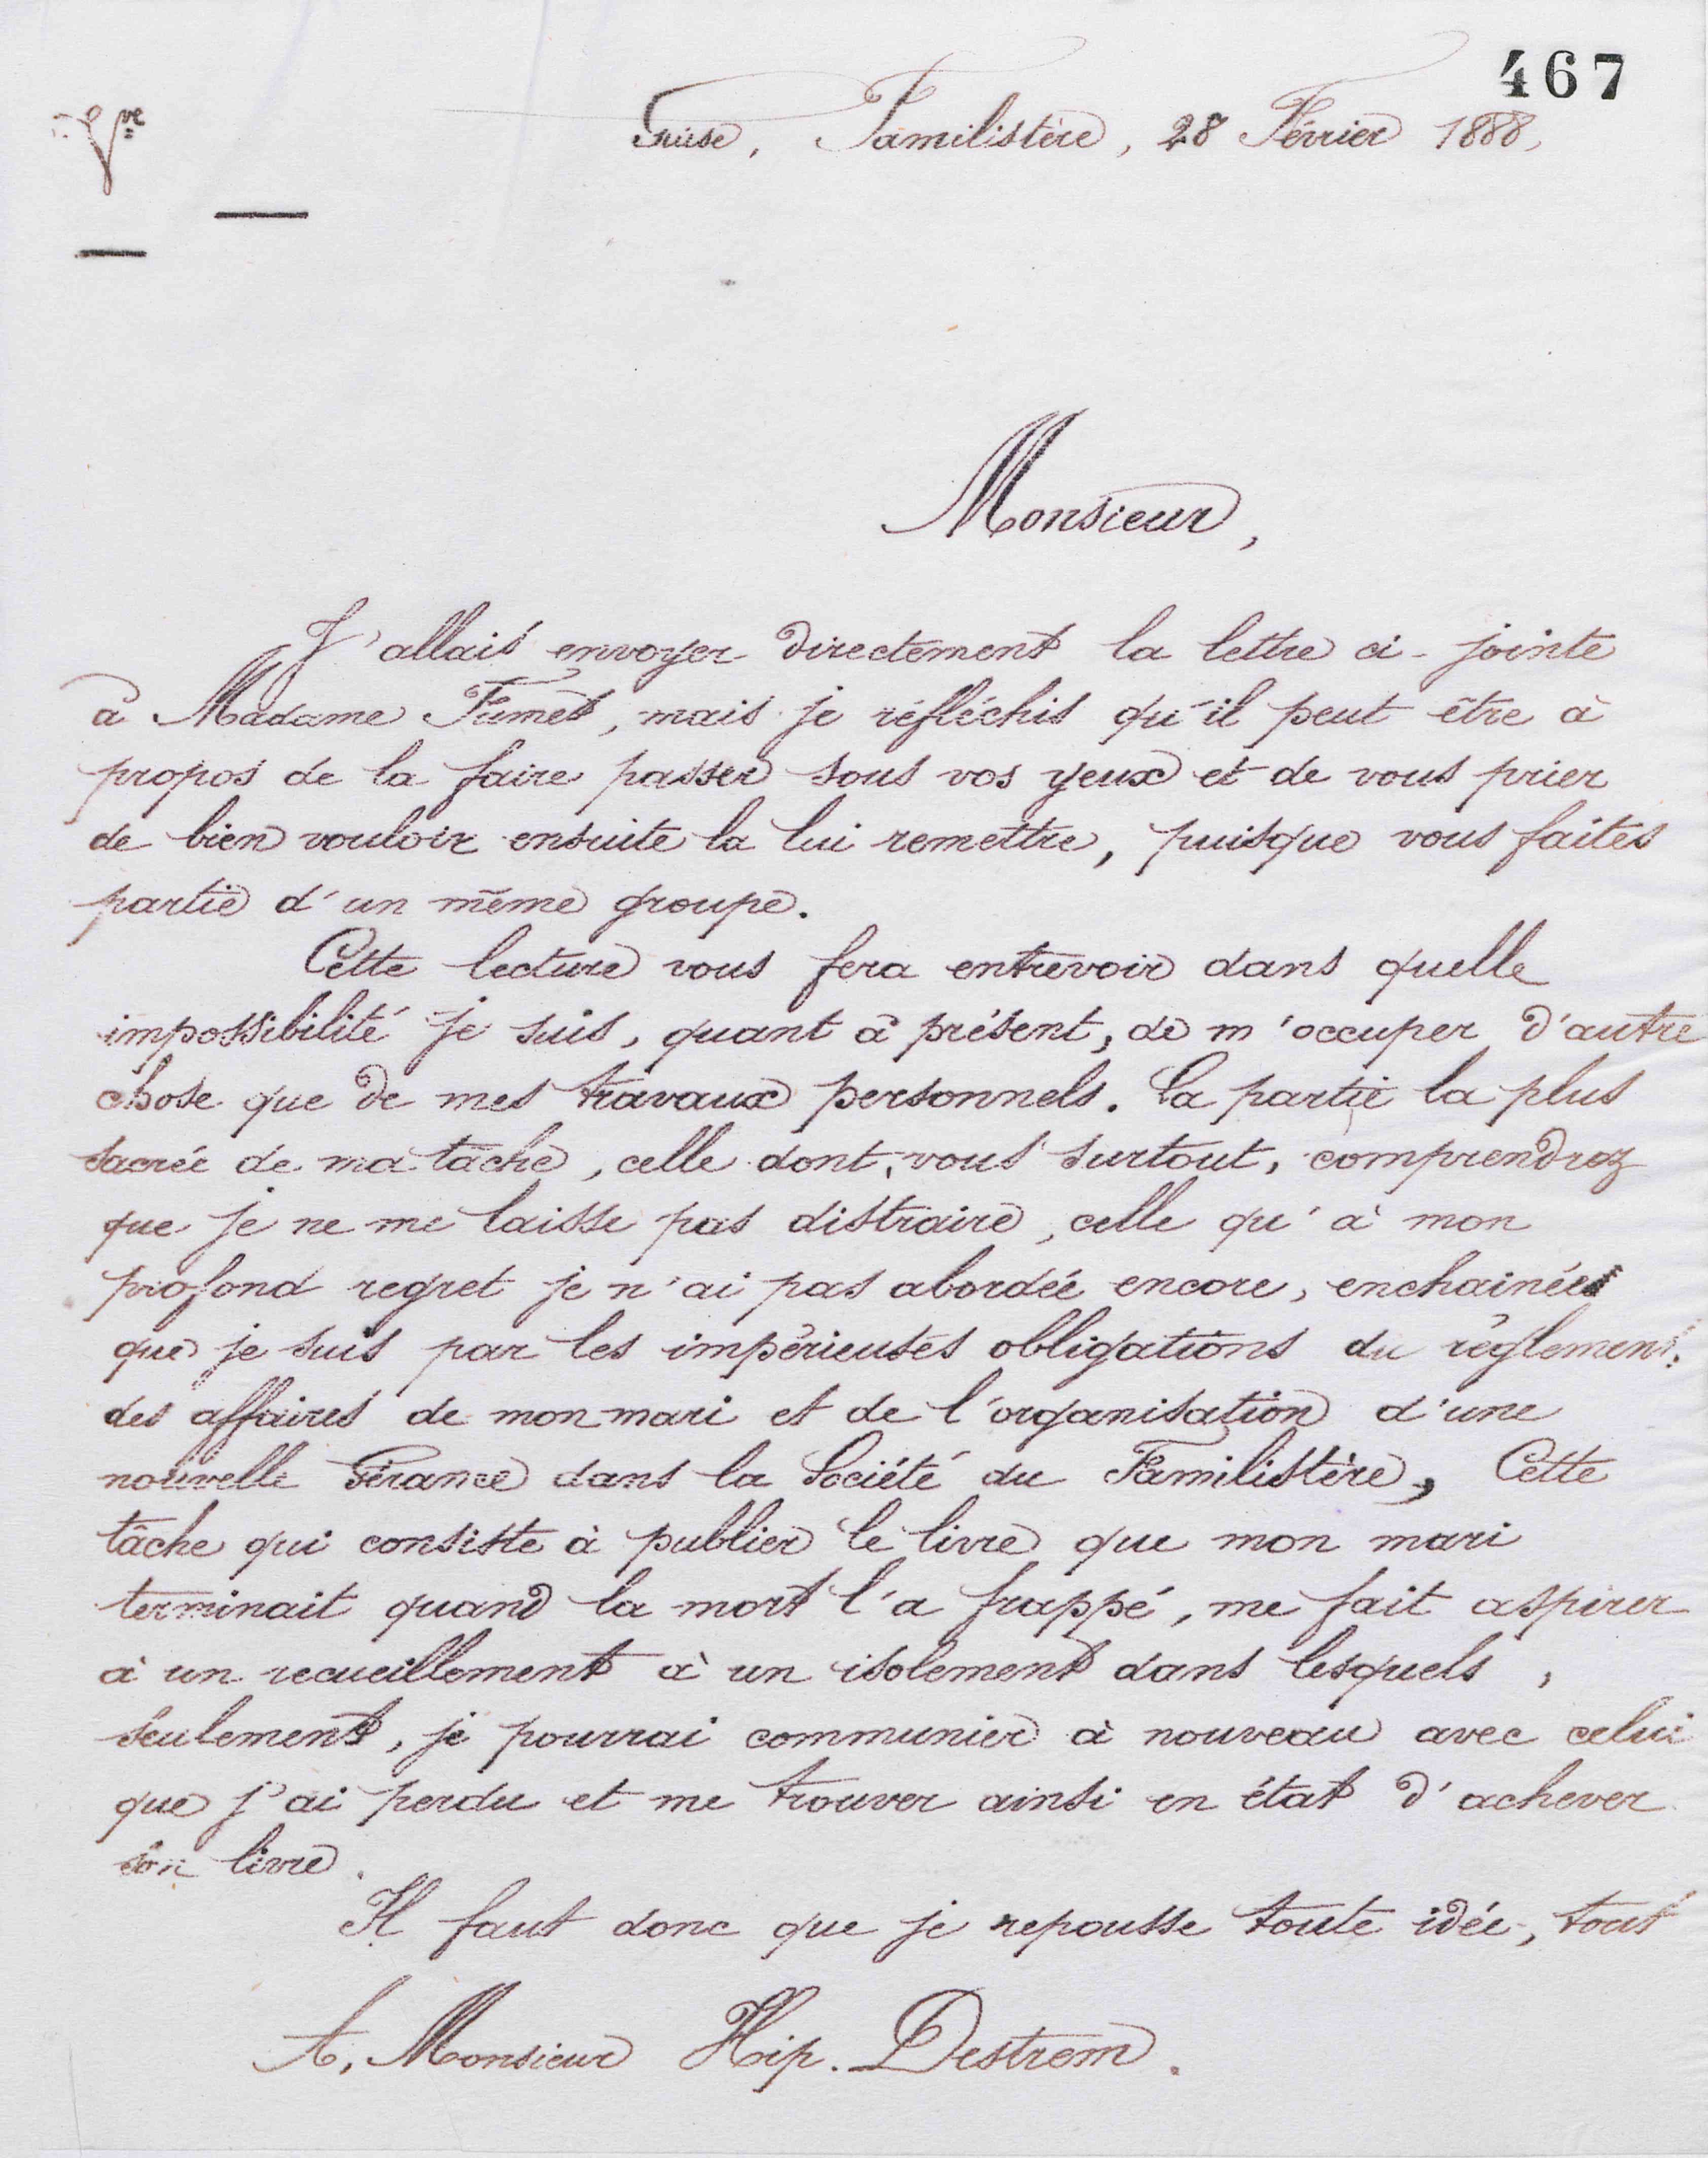 467
Guise, Familistère, 28 Février 1888,
Monsieur,
J'allais envoyer directement la lettre ci-jointe
à Madame Fumet, mais je réfléchis qu'il peut être à
propos de la faire passer sous vos yeux et de vous prier
de bien vouloir ensuite la lui remettre, puisque vous faites
partie d'un même groupe.
Cette lecture vous fera entrevoir dans quelle
impossibilité je suis, quant à présent, de m'occuper d'autre
chose que de mes travaux personnels. La partie la plus
sacrée de ma tâche, celle dont, vous surtout, comprendrez
que je ne me laisse pas distraire, celle qu'à mon
profond regret je n'ai pas abordée encore, enchainée
que je suis par les impérieuses obligations du règlement
des affaires de mon mari et de l'organisation d'une
nouvelle Gérance dans la Société du Familistère, Cette
tâche qui consiste à publier le livre que mon mari
terminait quand la mort l'a frappé, me fait aspirer
à un recueillement à un isolement dans lesquels,
seulement, je pourrai communier à nouveau avec celui
que j'ai perdu et me trouver ainsi en état d'achever
son livre.
Il faut donc que je repousse toute idée, tout
A, Monsieur Hip. Destrem.